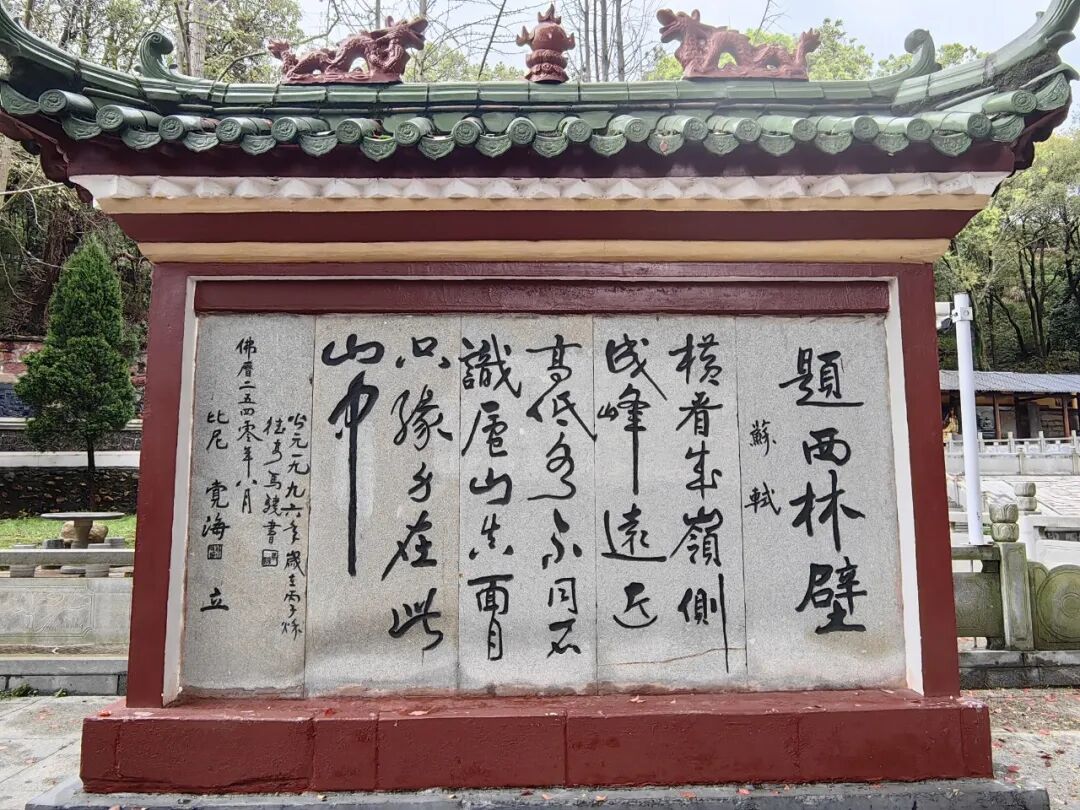 題西林壁
蘇軾
橫看成嶺側
成峰遠近
高低各不同不
識廬山真面目
只緣身在此
山中
公元一九九六年歲在丙子秋
馬驍書
佛曆二五四零年八月
比尼 覺海 立